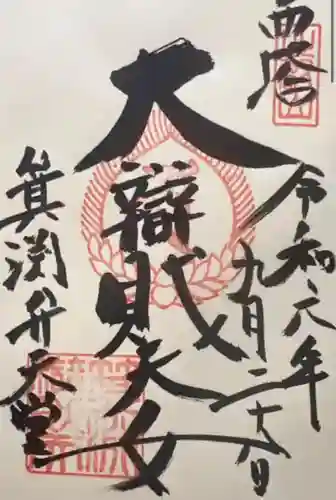 西塔
令和元年
九月二十八日
大辯財天女
箕渕弁天堂